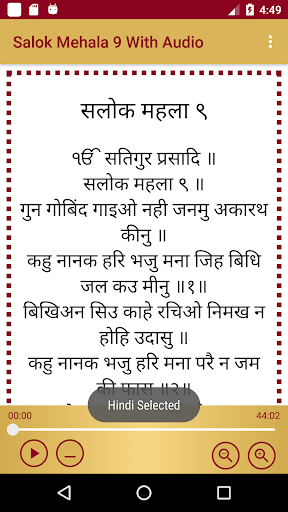 4:49
Salok Mehala 9 With Audio
सलोक महला ९
ੴ सतिगुर प्रसादि ॥
सलोक महला ९ ॥
गुन गोबिंद गाइओ नही जनमु अकारथ
कीनु ॥
कहु नानक हरि भजु मना जिह बिधि
जल कउ मीनु ॥१॥
बिखिअन सिउ काहे रचिओ निमख न
होहि उदासु ॥
कहु नानक भजु हरि मना परै न जम
की फास ॥२॥
Hindi Selected
00:00
44:02